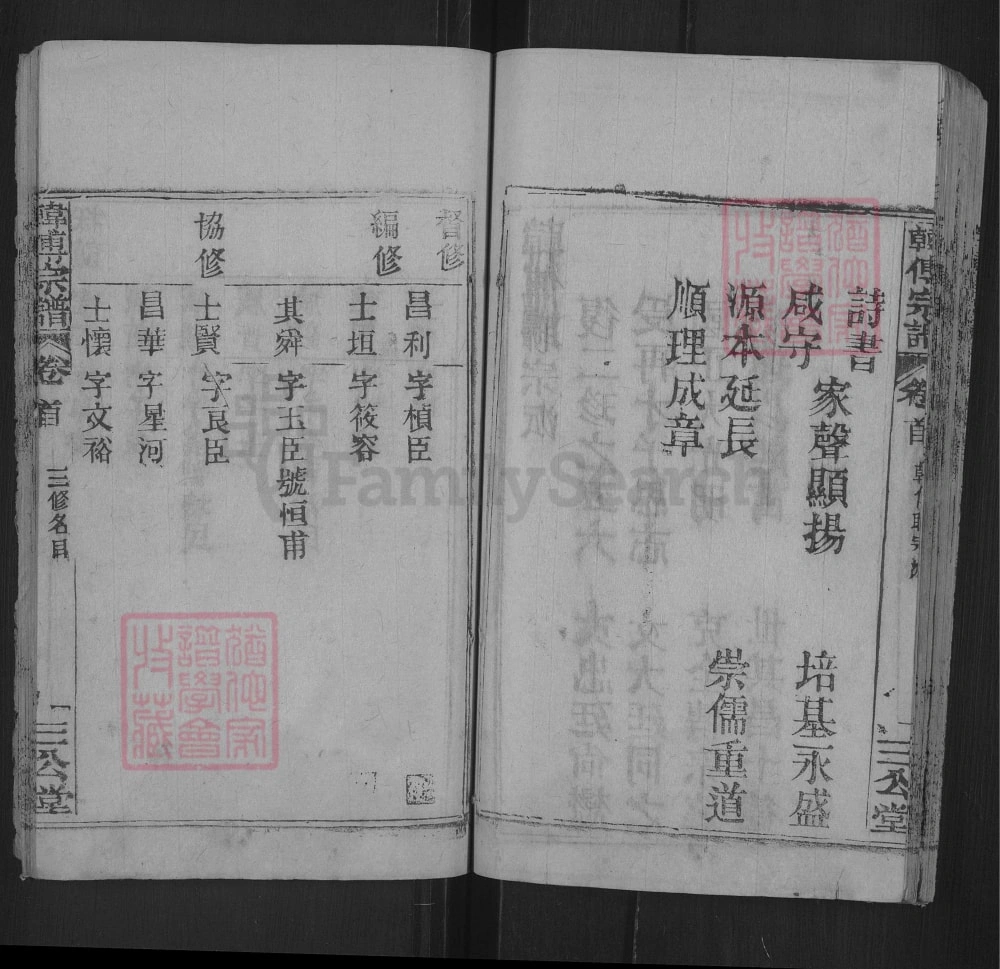 韓傅宗譜
卷首
韓傅聯宗派
三公堂
詩書
家聲顯揚
培基永盛
咸守
源本延長
崇儒重道
順理成章
督修
昌利 字楨臣
編修
士垣 字筱容
其舜 字玉臣號恒甫
協修
士賢 字良臣
昌華 字星河
士懷 字文裕
韓傅宗譜
卷首
三修名目
一
三公堂
譜學會
收藏
FamilySearch